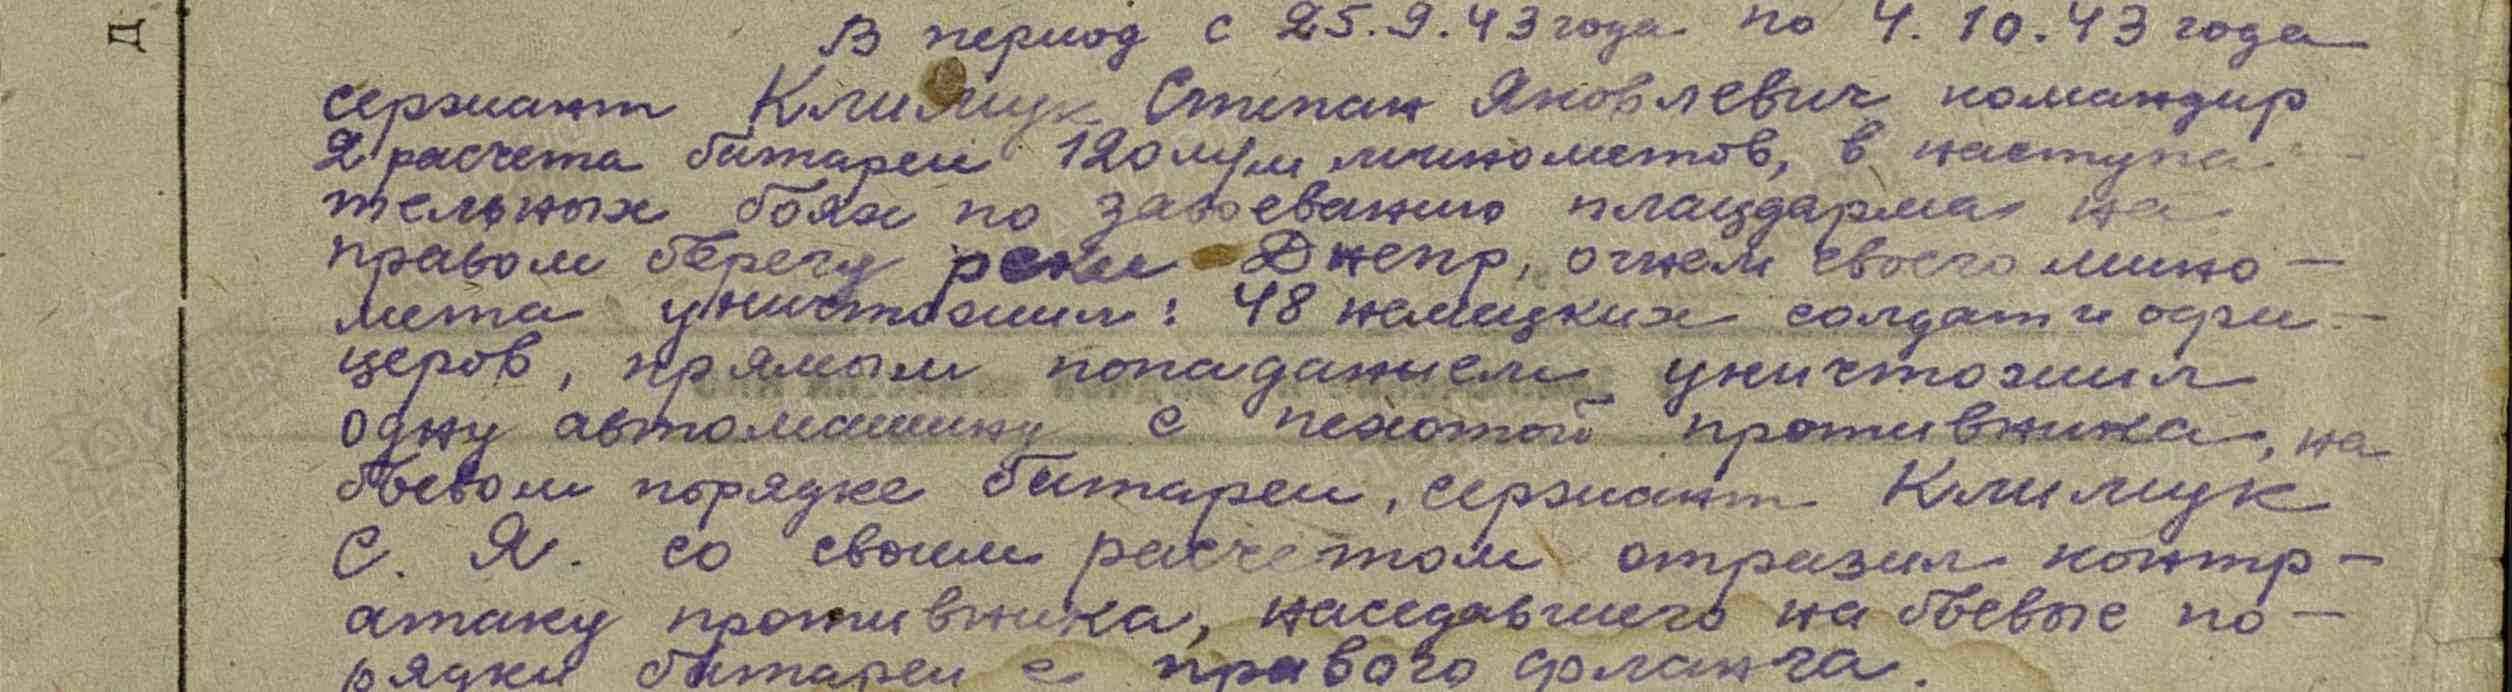 Д
В период с 25.9.43 года по 4.10.43 года
сержант Климчук Степан Яковлевич командир
2 расчета батареи 120 м/м минометов, в наступа-
тельных боях по завоеванию плацдарма на
правом берегу реки Днепр, огнем своего мино-
мета уничтожил: 48 немецких солдат и офи-
церов, прямым попаданием уничтожил
одну автомашину с пехотой противника, на
боевом порядке батареи, сержант Климчук
С. Я. со своим расчетом отразил контр-
атаку противника, наседавшего на боевые по-
рядки батареи с правого фланга.